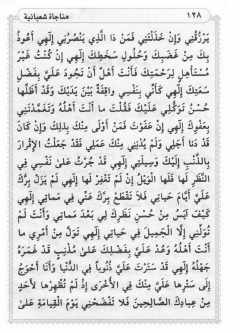 ١٢٨
مناجاة شعبانية
يَرْزُقُنِي وَإِنْ خَذَلْتَنِي فَمَنْ ذَا الَّذِي يَنْصُرُنِي إِلٰهِي أَعُوذُ
بِكَ مِنْ غَضَبِكَ وَحُلُولِ سَخَطِكَ إِلٰهِي إِنْ كُنْتُ غَيْرَ
مُسْتَأْهِلٍ لِرَحْمَتِكَ فَأَنْتَ أَهْلٌ أَنْ تَجُودَ عَلَيَّ بِفَضْلِ
سَعَتِكَ إِلٰهِي كَأَنِّي بِنَفْسِي وَاقِفَةٌ بَيْنَ يَدَيْكَ وَقَدْ أَظَلَّهَا
حُسْنُ تَوَكُّلِي عَلَيْكَ فَقُلْتَ مَا أَنْتَ أَهْلُهُ وَتَغَمَّدْتَنِي
بِعَفْوِكَ إِلٰهِي إِنْ عَفَوْتَ فَمَنْ أَوْلَى مِنْكَ بِذٰلِكَ وَإِنْ كَانَ
قَدْ دَنَا أَجَلِي وَلَمْ يُدْنِنِي مِنْكَ عَمَلِي فَقَدْ جَعَلْتُ الْإِقْرَارَ
بِالذَّنْبِ إِلَيْكَ وَسِيلَتِي إِلٰهِي قَدْ جُرْتُ عَلَى نَفْسِي فِي
النَّظَرِ لَهَا فَلَهَا الْوَيْلُ إِنْ لَمْ تَغْفِرْ لَهَا إِلٰهِي لَمْ يَزَلْ بِرُّكَ
عَلَيَّ أَيَّامَ حَيَاتِي فَلَا تَقْطَعْ بِرَّكَ عَنِّي فِي مَمَاتِي إِلٰهِي
كَيْفَ آيَسُ مِنْ حُسْنِ نَظَرِكَ لِي بَعْدَ مَمَاتِي وَأَنْتَ لَمْ
تُوَلِّنِي إِلَّا الْجَمِيلَ فِي حَيَاتِي إِلٰهِي تَوَلَّ مِنْ أَمْرِي مَا
أَنْتَ أَهْلُهُ وَعُدْ عَلَيَّ بِفَضْلِكَ عَلَى مُذْنِبٍ قَدْ غَمَرَهُ
جَهْلُهُ إِلٰهِي قَدْ سَتَرْتَ عَلَيَّ ذُنُوباً فِي الدُّنْيَا وَأَنَا أَحْوَجُ
إِلَى سَتْرِهَا عَلَيَّ مِنْكَ فِي الْأُخْرَى إِذْ لَمْ تُظْهِرْهَا لِأَحَدٍ
مِنْ عِبَادِكَ الصَّالِحِينَ فَلَا تَفْضَحْنِي يَوْمَ الْقِيَامَةِ عَلَى